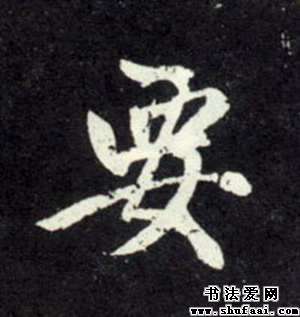 要
书法爱网
www.shufaai.com